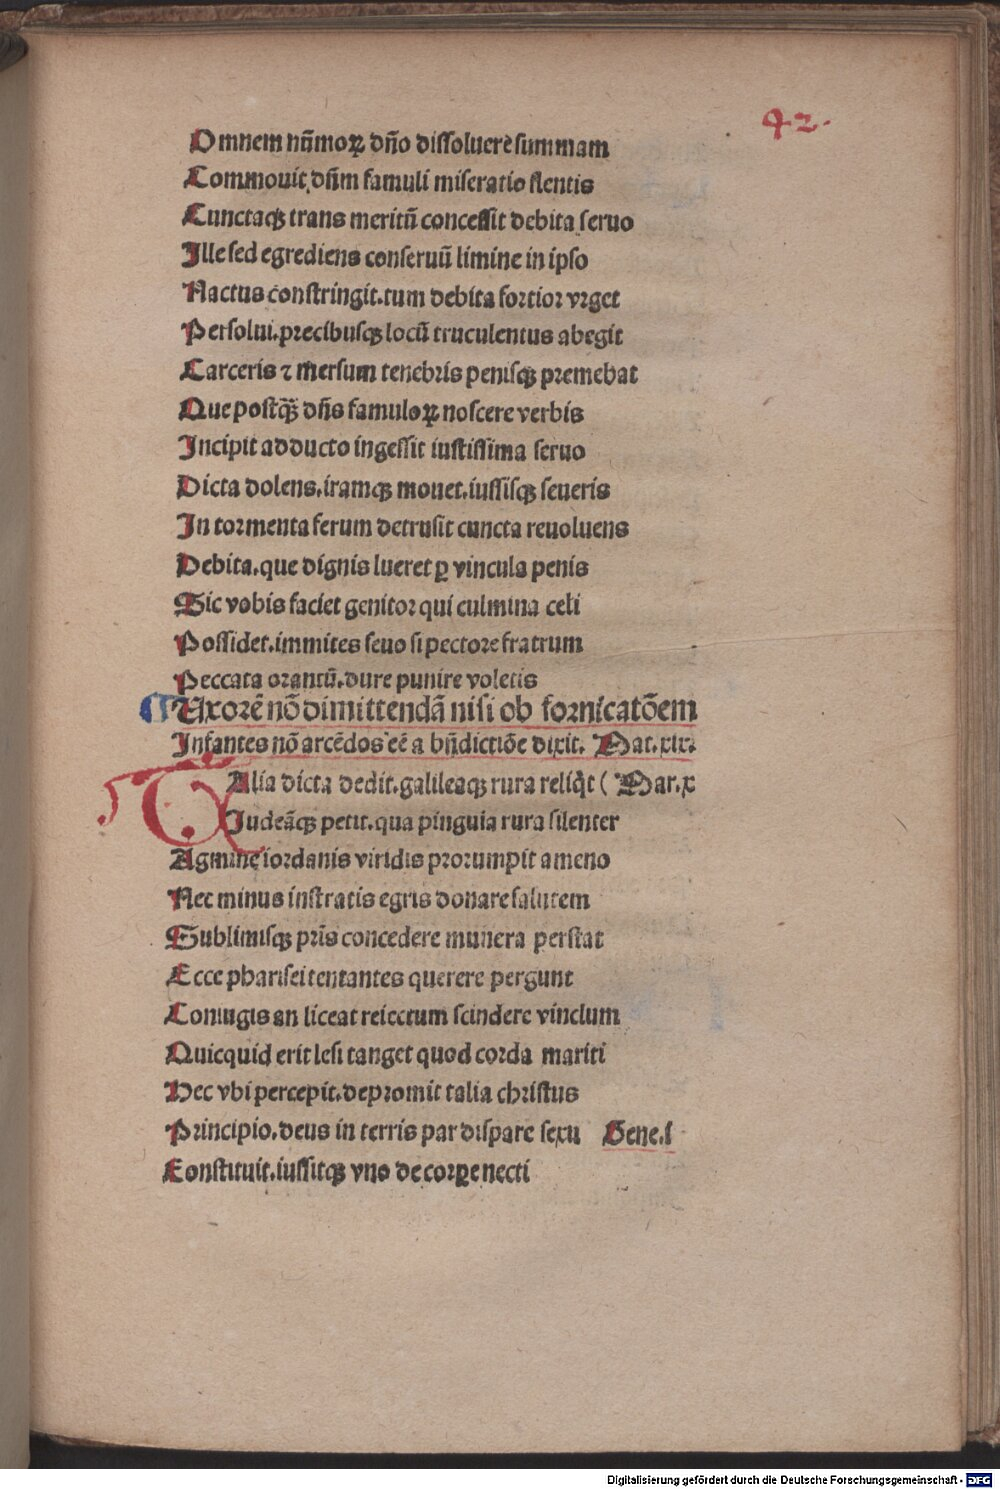 42.
Omnem nūmoꝝ dn̄o dissoluere summam
Commouit dn̄m famuli miseratio flentis
Cunctaqꝫ trans meritū concessit debita seruo
Ille sed egrediens conseruū limine in ipso
Nactus constringit.tum debita fortior vrget
Persolui.precibusqꝫ locū truculentus abegit
Carceris ⁊ mersum tenebris penisqꝫ premebat
Que postꝙ̄ dn̄s famuloꝝ noscere verbis
Incipit adducto ingessit iustissima seruo
Dicta dolens.iramqꝫ mouet.iussisqꝫ seueris
In tormenta ferum detrusit cuncta reuoluens
Debita.que dignis lueret ꝑ vincula penis
Sic vobis faciet genitor qui culmina celi
Possidet.immites seuo si pectore fratrum
Peccata orantū.dure punire voletis
¶ Uxorē nō dimittendā nisi ob fornicatōem
Infantes nō arcēdos eē a bn̄dictiōe dixit. Mat.xix.
Talia dicta dedit.galileaqꝫ rura reliq̄t ( Mar.x
Iudeāqꝫ petit.qua pinguia rura silenter
Agmine iordanis viridis prorumpit ameno
Nec minus instratis egris donare salutem
Sublimisqꝫ prīs concedere munera perstat
Ecce pharisei tentantes querere pergunt
Coniugis an liceat reiectum scindere vinclum
Quicquid erit lesi tanget quod corda mariti
Hec vbi percepit.depromit talia christus
Principio.deus in terris par dispare sexu Gene.i
Constituit.iussitqꝫ vno de corꝑe necti
Digitalisierung gefördert durch die Deutsche Forschungsgemeinschaft - DFG